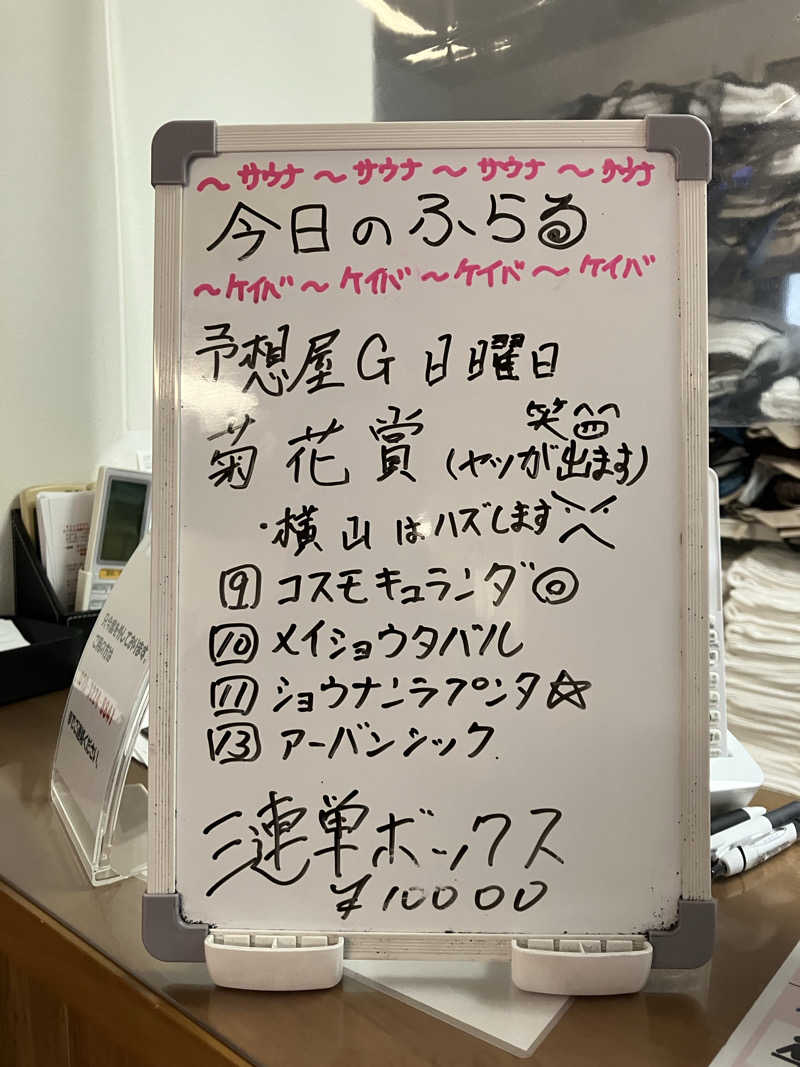 ～サウナ～サウナ～サウナ～サウナ
今日のふらる
～ケイバ～ケイバ～ケイバ～ケイバ
予想屋G日曜日
菊花賞(ヤツが出ます)笑
・横山はハズします
⑨コスモキュランダ◎
⑩メイショウタバル
⑪ショウナンラプンタ☆
⑬アーバンシック
三連単ボックス
¥10000